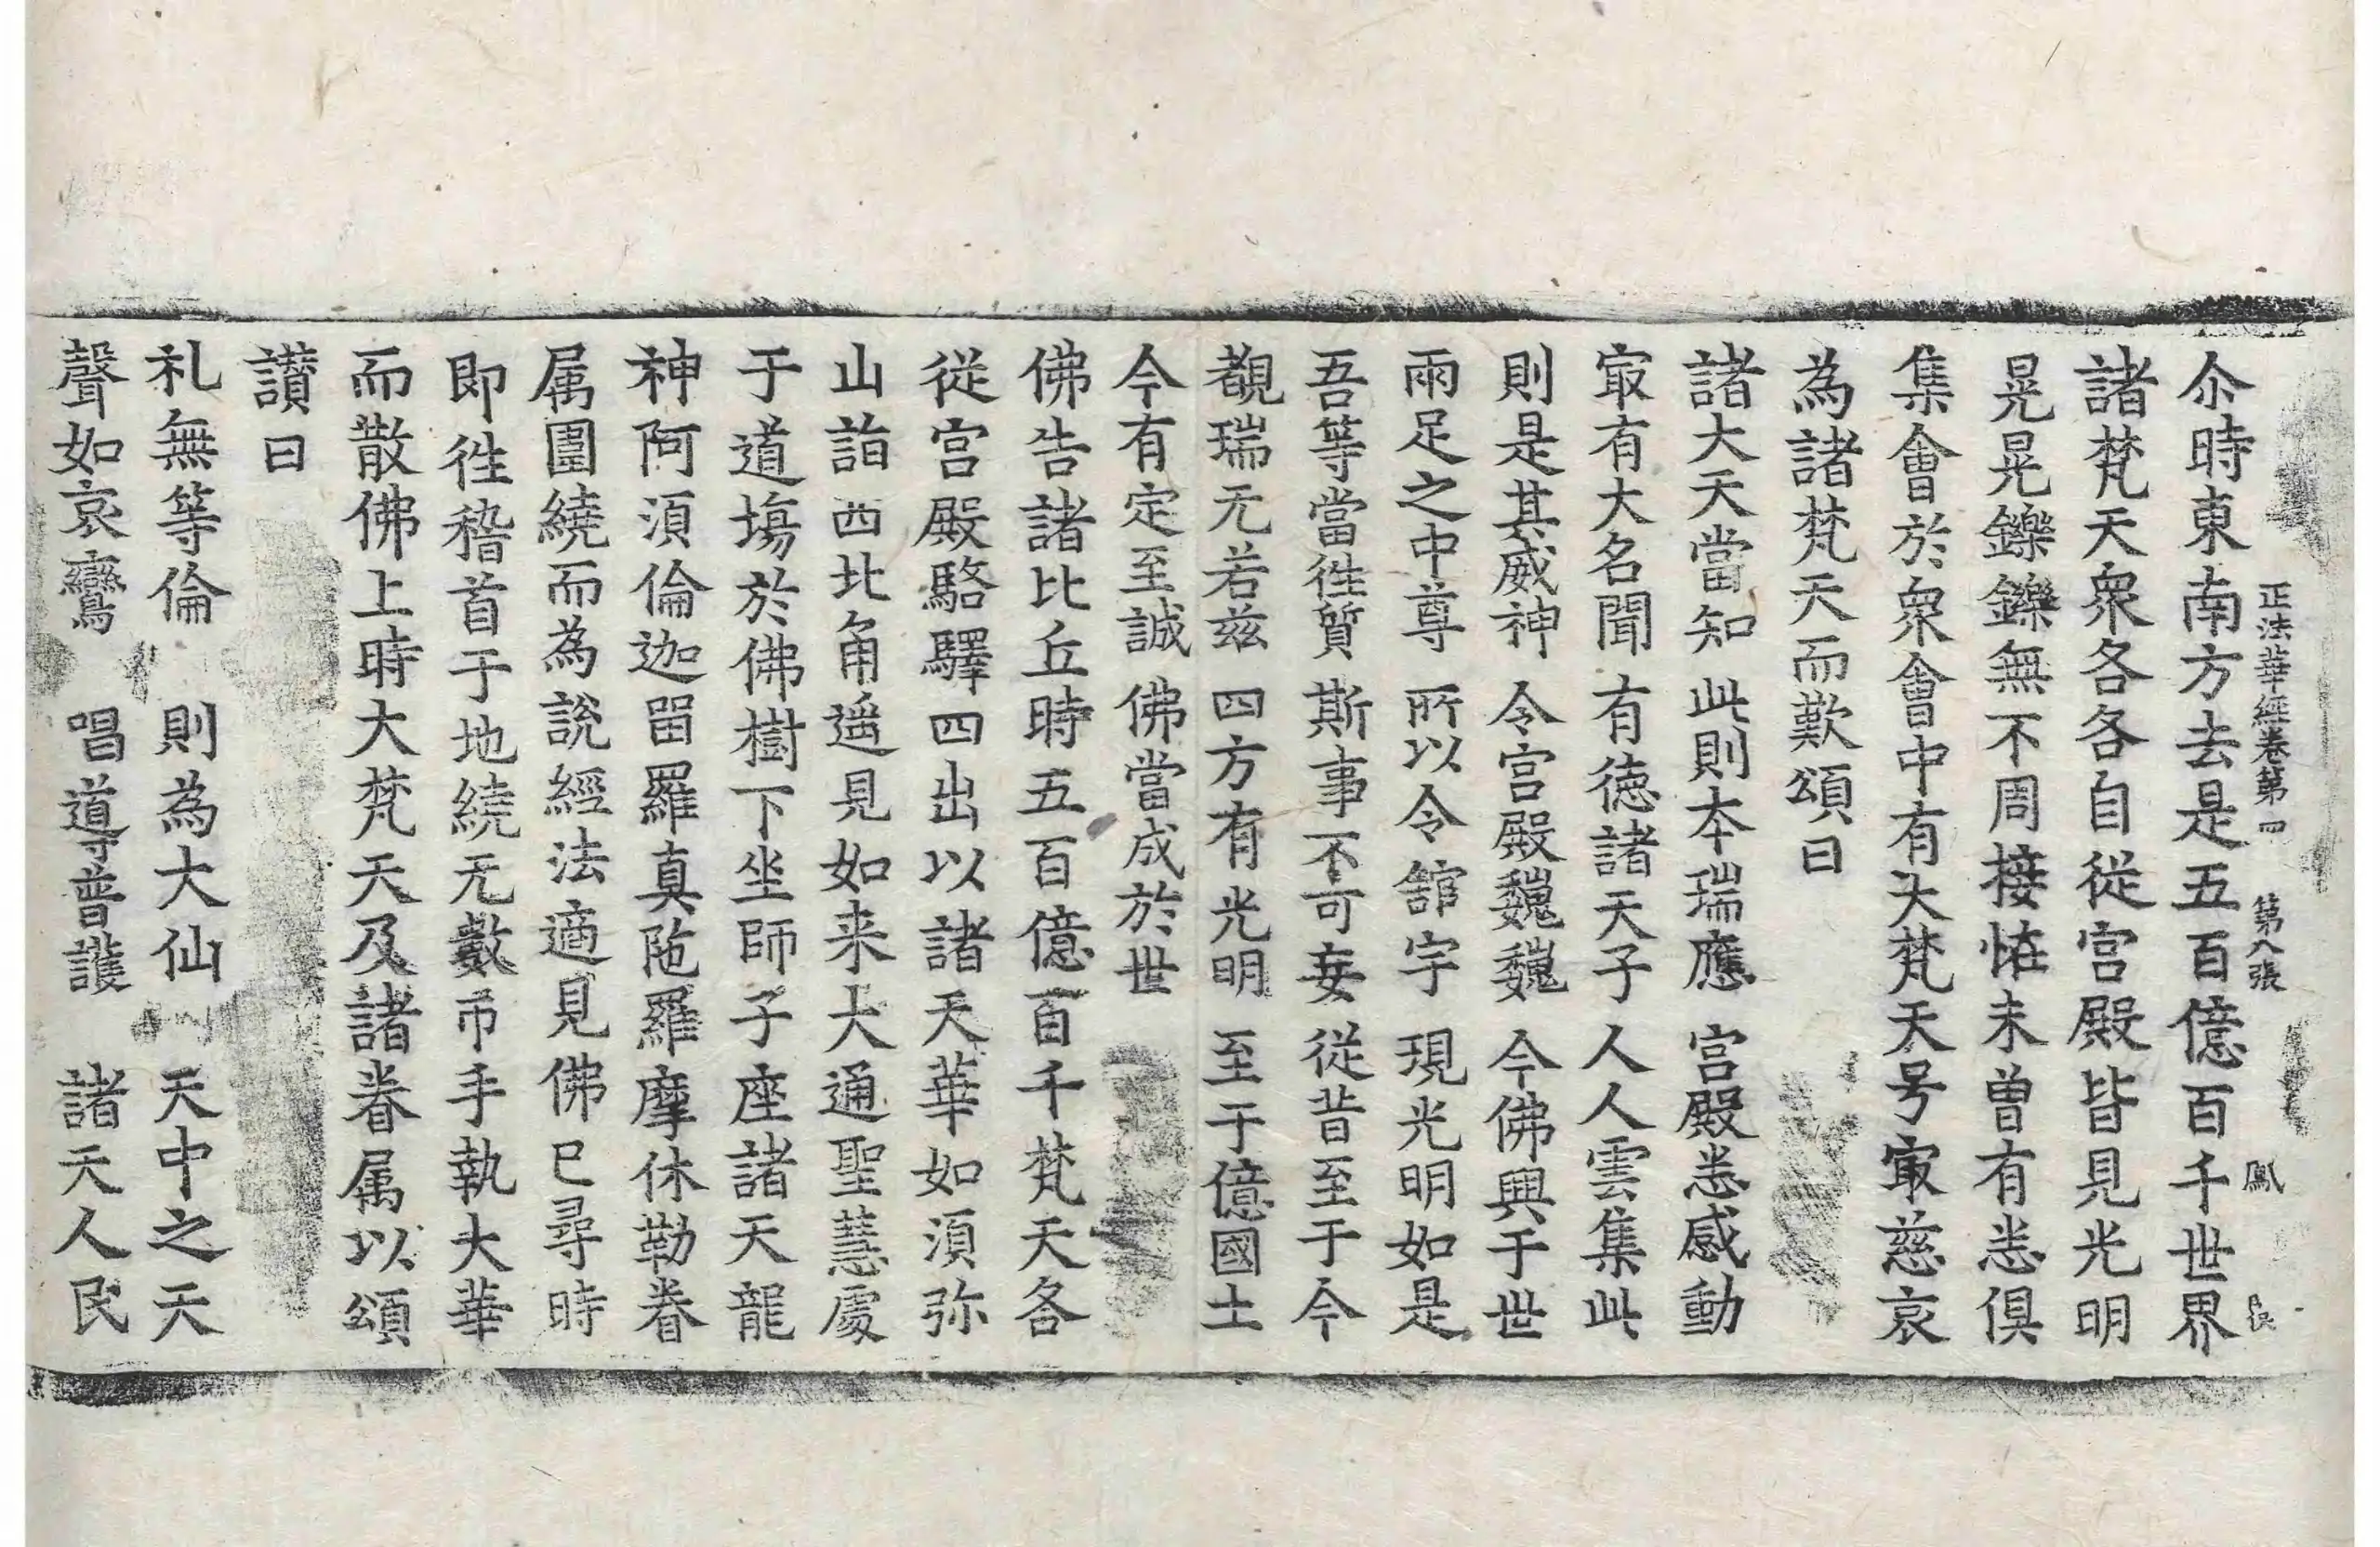 正法華經卷第四 第八張 鳳
尒時東南方去是五百億百千世界
諸梵天衆各各自從宫殿皆見光明
晃晃鑠鑠無不周接恠未曾有悉俱
集會於衆會中有大梵天号㝡慈哀
為諸梵天而歎頌曰
諸大天當知 此則本瑞應 宫殿悉感動
㝡有大名聞 有德諸天子 人人雲集此
則是其威神 令宫殿巍巍 今佛興于世
兩足之中尊 所以令舘宇 現光明如是
吾等當徃質 斯事不可妄 從昔至于今
覩瑞无若兹 四方有光明 至于億國土
今有定至誠 佛當成於世
佛告諸比丘時五百億百千梵天各
從宫殿駱驛四出以諸天華如須弥
山詣西北角遥見如来大通聖慧處
于道塲於佛樹下坐師子座諸天龍
神阿須倫迦留羅真陁羅摩休勒眷
属圍繞而為說經法適見佛已尋時
即徃稽首于地繞无數帀手執大華
而散佛上時大梵天及諸眷属以頌
讃曰
礼無等倫 則為大仙 天中之天
聲如哀鸞 唱導普護 諸天人民